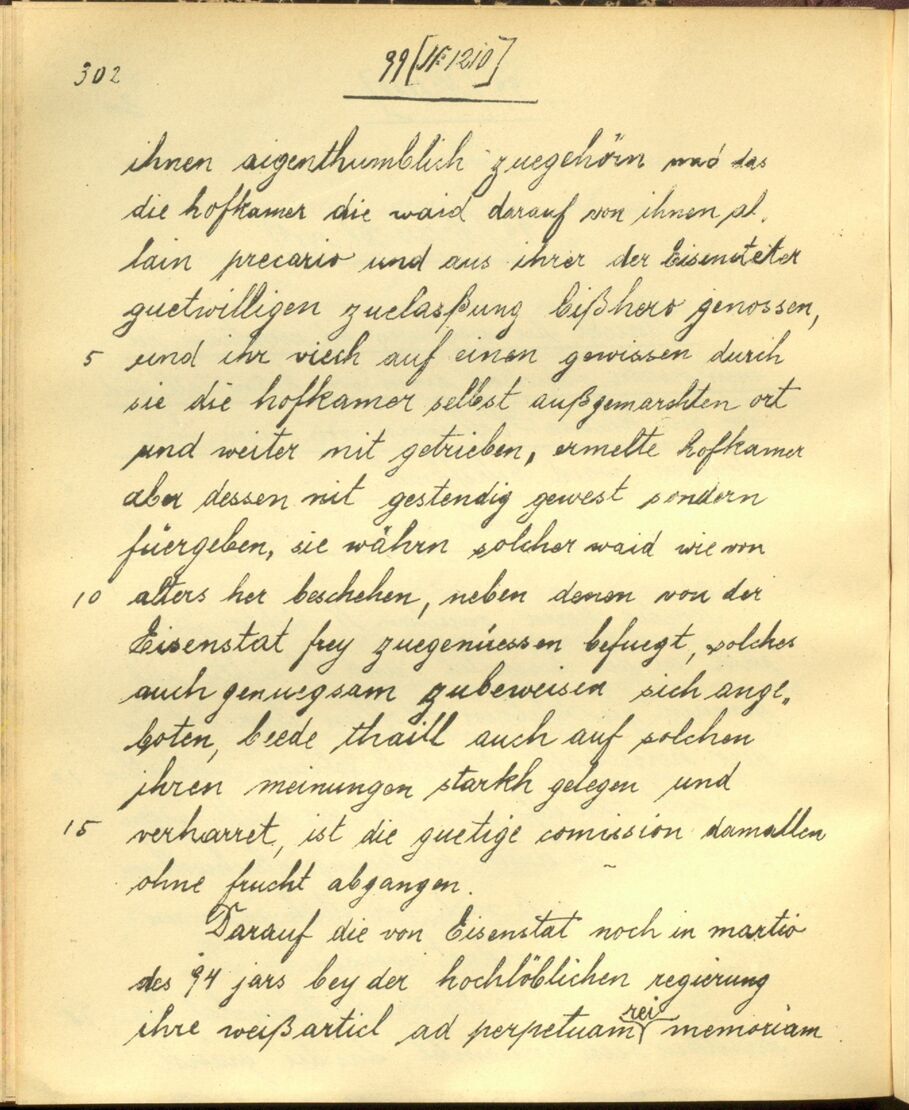 302
99 [N: 1210]
ihnen aigenthumblich zuegehörn und das
die hofkamer die waid darauf von ihnen al.
lain precario und aus ihrer der Eisensteter
guetwilligen zuelasßung bißhero genossen,
5 und ihr viech auf einen gewissen durch
sie die hofkamer selbst außgemarchten ort
und weiter nit getrieben, ermelte hofkamer
aber dessen nit gestendig gewest sondern
füergeben, sie währn solcher waid wie von
10 alters her beschehen, neben denen von der
Eisenstat frey zuegenüessen befuegt, solches
auch genuegsam zubeweisen sich ange„
boten, beede thaill auch auf solchen
ihren meinungen starkh gelegen und
15 verharret, ist die guetige comission damallen
ohne frucht abgangen.
Darauf die von Eisenstat noch in martio
des 94 jars bey der hochlöblichen regierung
ihre weißarticl ad perpetuam rei memoriam